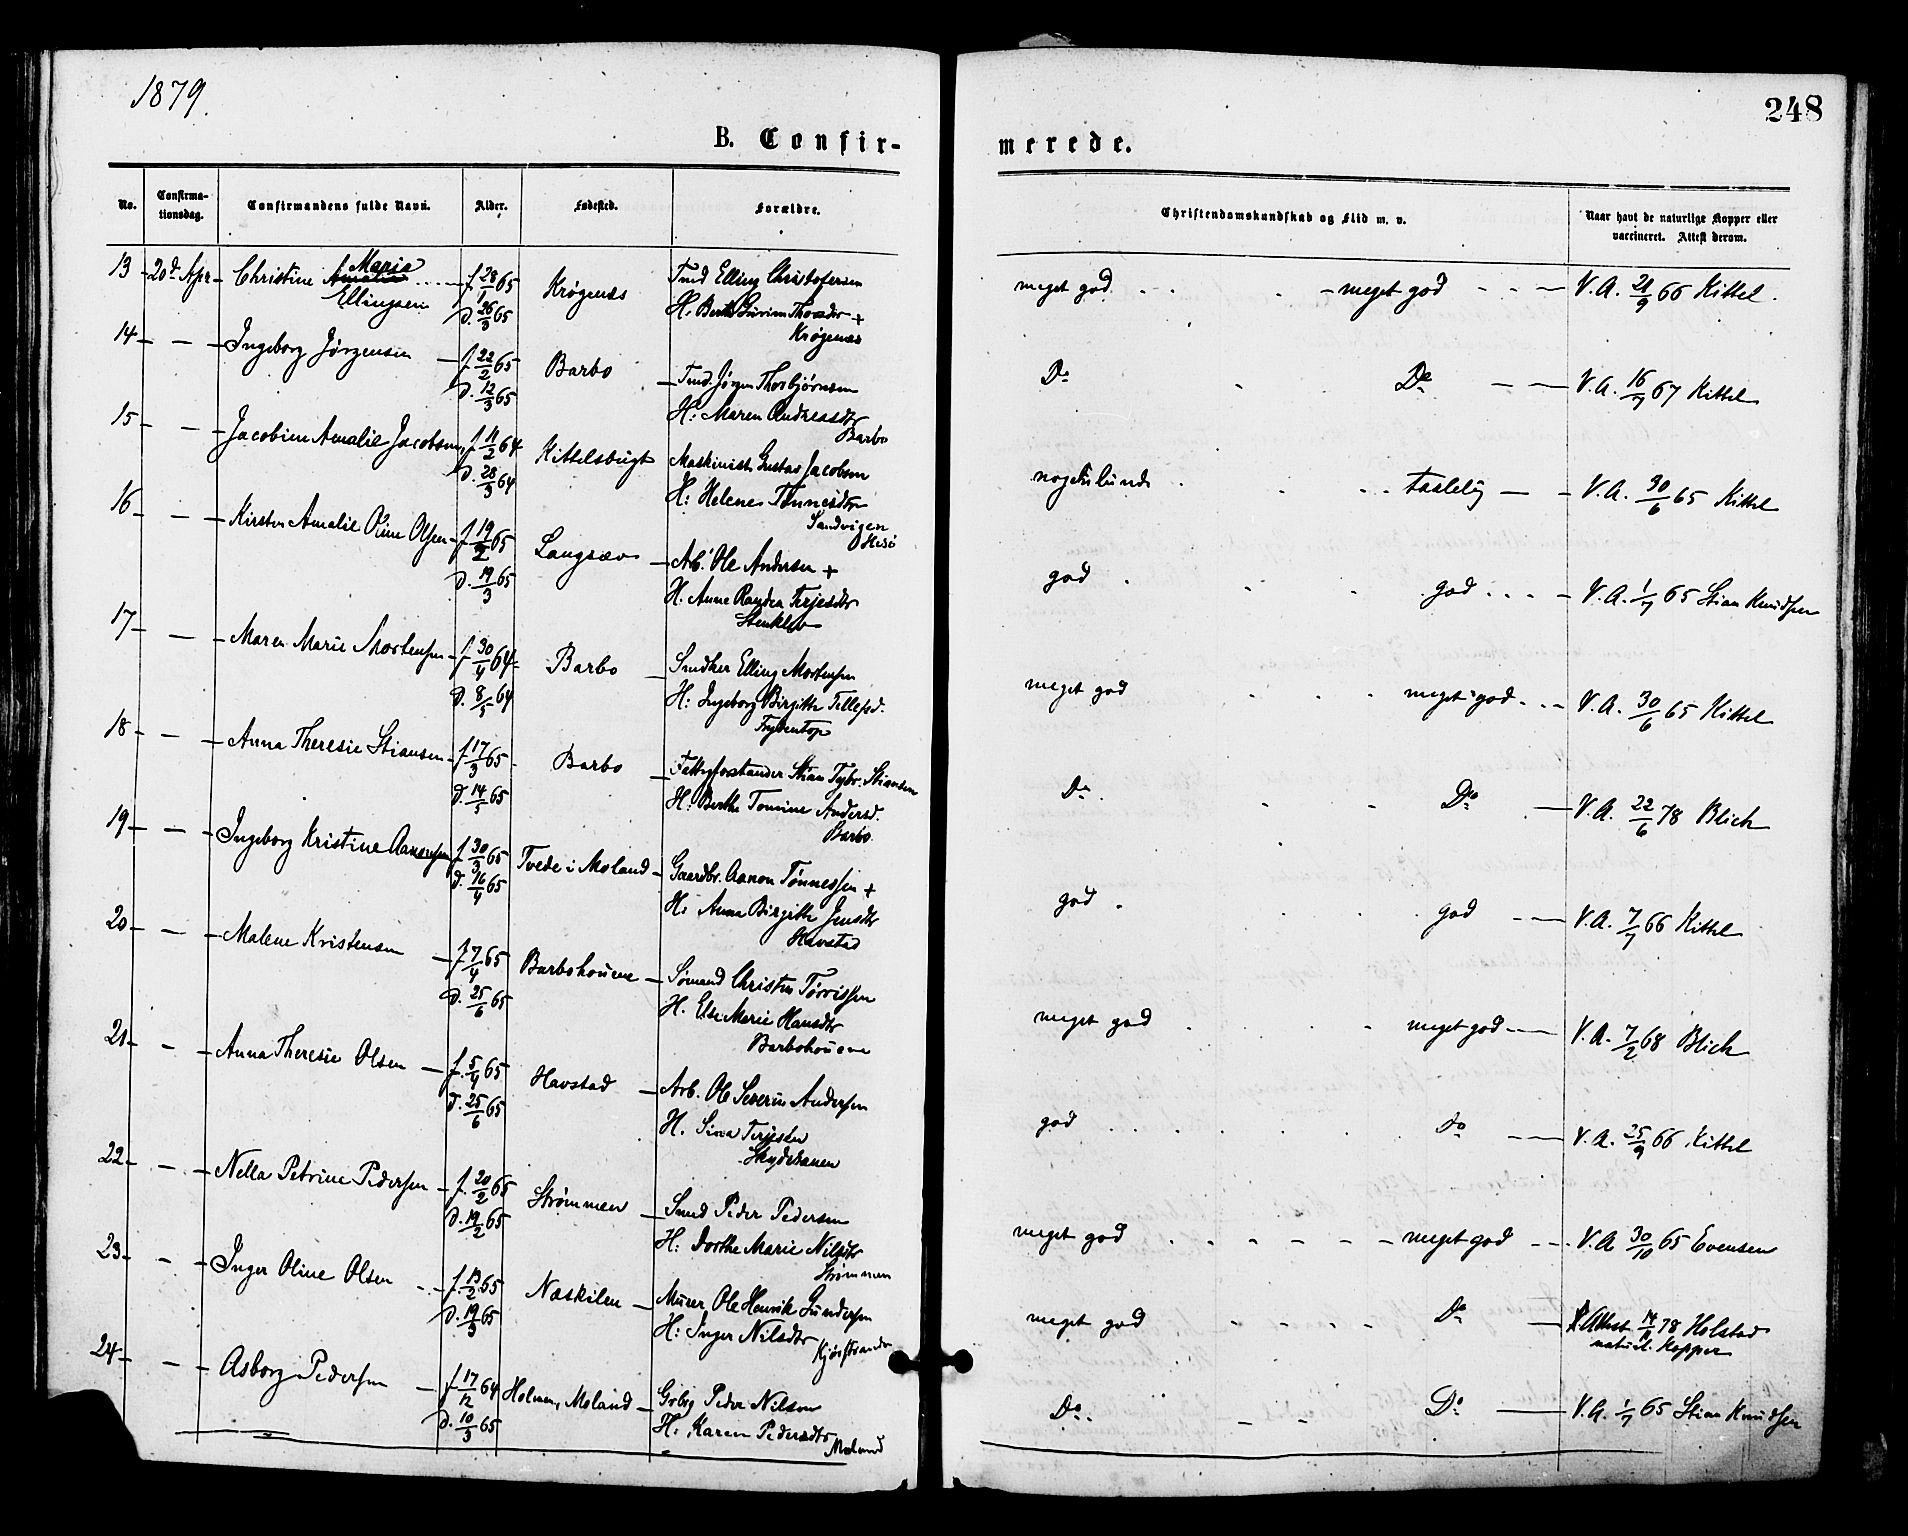 1879.
248
B. Confir-
merede.
No.
Confirma-
tionsdag.
Confirmandens fulde Navn.
Alder.
Fødested.
Forældre.
Christendomskundskab og Flid m. v.
Naar havt de naturlige Kopper eller
vaccineret. Attest derom.
13 20de Apr Christine Amalie Maria
Ellingsen
f 28/1 65
d. 26/3 65
Krøgenes
Tmd Elling Christofersen
H. Berthe Thosdtr +
Krøgenæs
meget god. meget god V. A. 21/9 66 Kittel.
14 Ingeborg Jørgensen
f 22/2 65
d. 12/3 65
Barbo
Tmd. Jørgen Thorbjørnsen
H: Maren Andreasdtr
Barbo
Do Do V. A. 16/7 67 Kittel
15 Jacobine Amalie Jacobsen
f 11/2 64
d. 28/3 64
Kittelsbugt
Maskinist Gustav Jacobsen
H: Helene Tønnesdtr
Sandvigen
Hisø
nogenlunde taalelig V. A. 30/6 65 Kittel
16 Kirsten Amalie Oline Olsen
f 19/2 65
d. 19/3 65
Langsæv
Arb. Ole Andersen +
H. Anne Randea Terjesdtr
Stenklev
god god V. A. 1/7 65 Stian Knudsen
17 Maren Marie Mortensen
f 30/4 64
d. 8/5 64
Barbo
Snedker Elling Mortensen
H: Ingeborg Birgitte Tellefsd.
Frydentop
meget god meget god V. A. 30/6 65 Kittel
18 Anna Theresie Stiansen
f 17/3 65
d. 14/5 65
Barbo
Fattigforstander Stian Tybr. Stiansen
H: Berthe Tomine Andersd.
Barbo
Do. Do V. A. 22/6 78 Blich
19 Ingeborg Kristine Aanonsen
f 30/3 65
d. 16/4 65
Tvede i Moland
Gaardbr. Aanon Tønnessen +
H: Anna Birgitte Jensdtr
Havstad
god god V. A. 7/7 66 Kittel
20 Malene Kristensen
f 7/4 65
d. 25/6 65
Barbohouene
Sømand Christen Tørrissen
H. Else Marie Hansdtr
Barbohouene
meget god meget god V. A. 7/2 68 Blich
21 Anna Theresie Olsen
f. 5/4 65
d. 25/6 65
Havstad
Arb. Ole Severin Andersen
H. Sina Terjesdtr
Skydebanen
god do V. A. 25/9 66 Kittel
22 Nella Petrine Pedersen
f. 20/2 65
d. 19/2 65
Strømmen
Smed Peder Pedersen
H: Dorthe Marie Nilsdtr
Strømmen
meget god meget god V. A 30/10 65 Evensen
23 Inger Oline Olsen
f. 13/2 65
d. 19/3 65
Næskilen
Murer Ole Henrik Gundersen
H: Inger Nilsdtr
Kjørstranden
meget god Do Attest 14/11 78 Holstad
naturl. Kopper
24 Asborg Pedersen
f 17/12 64
d. 10/3 65
Holmen, Moland
Grbrg Peder Nilsen
H: Karen Pedersdtr
Moland
Do. Do V. A. 1/7 65 Stian Knudsen